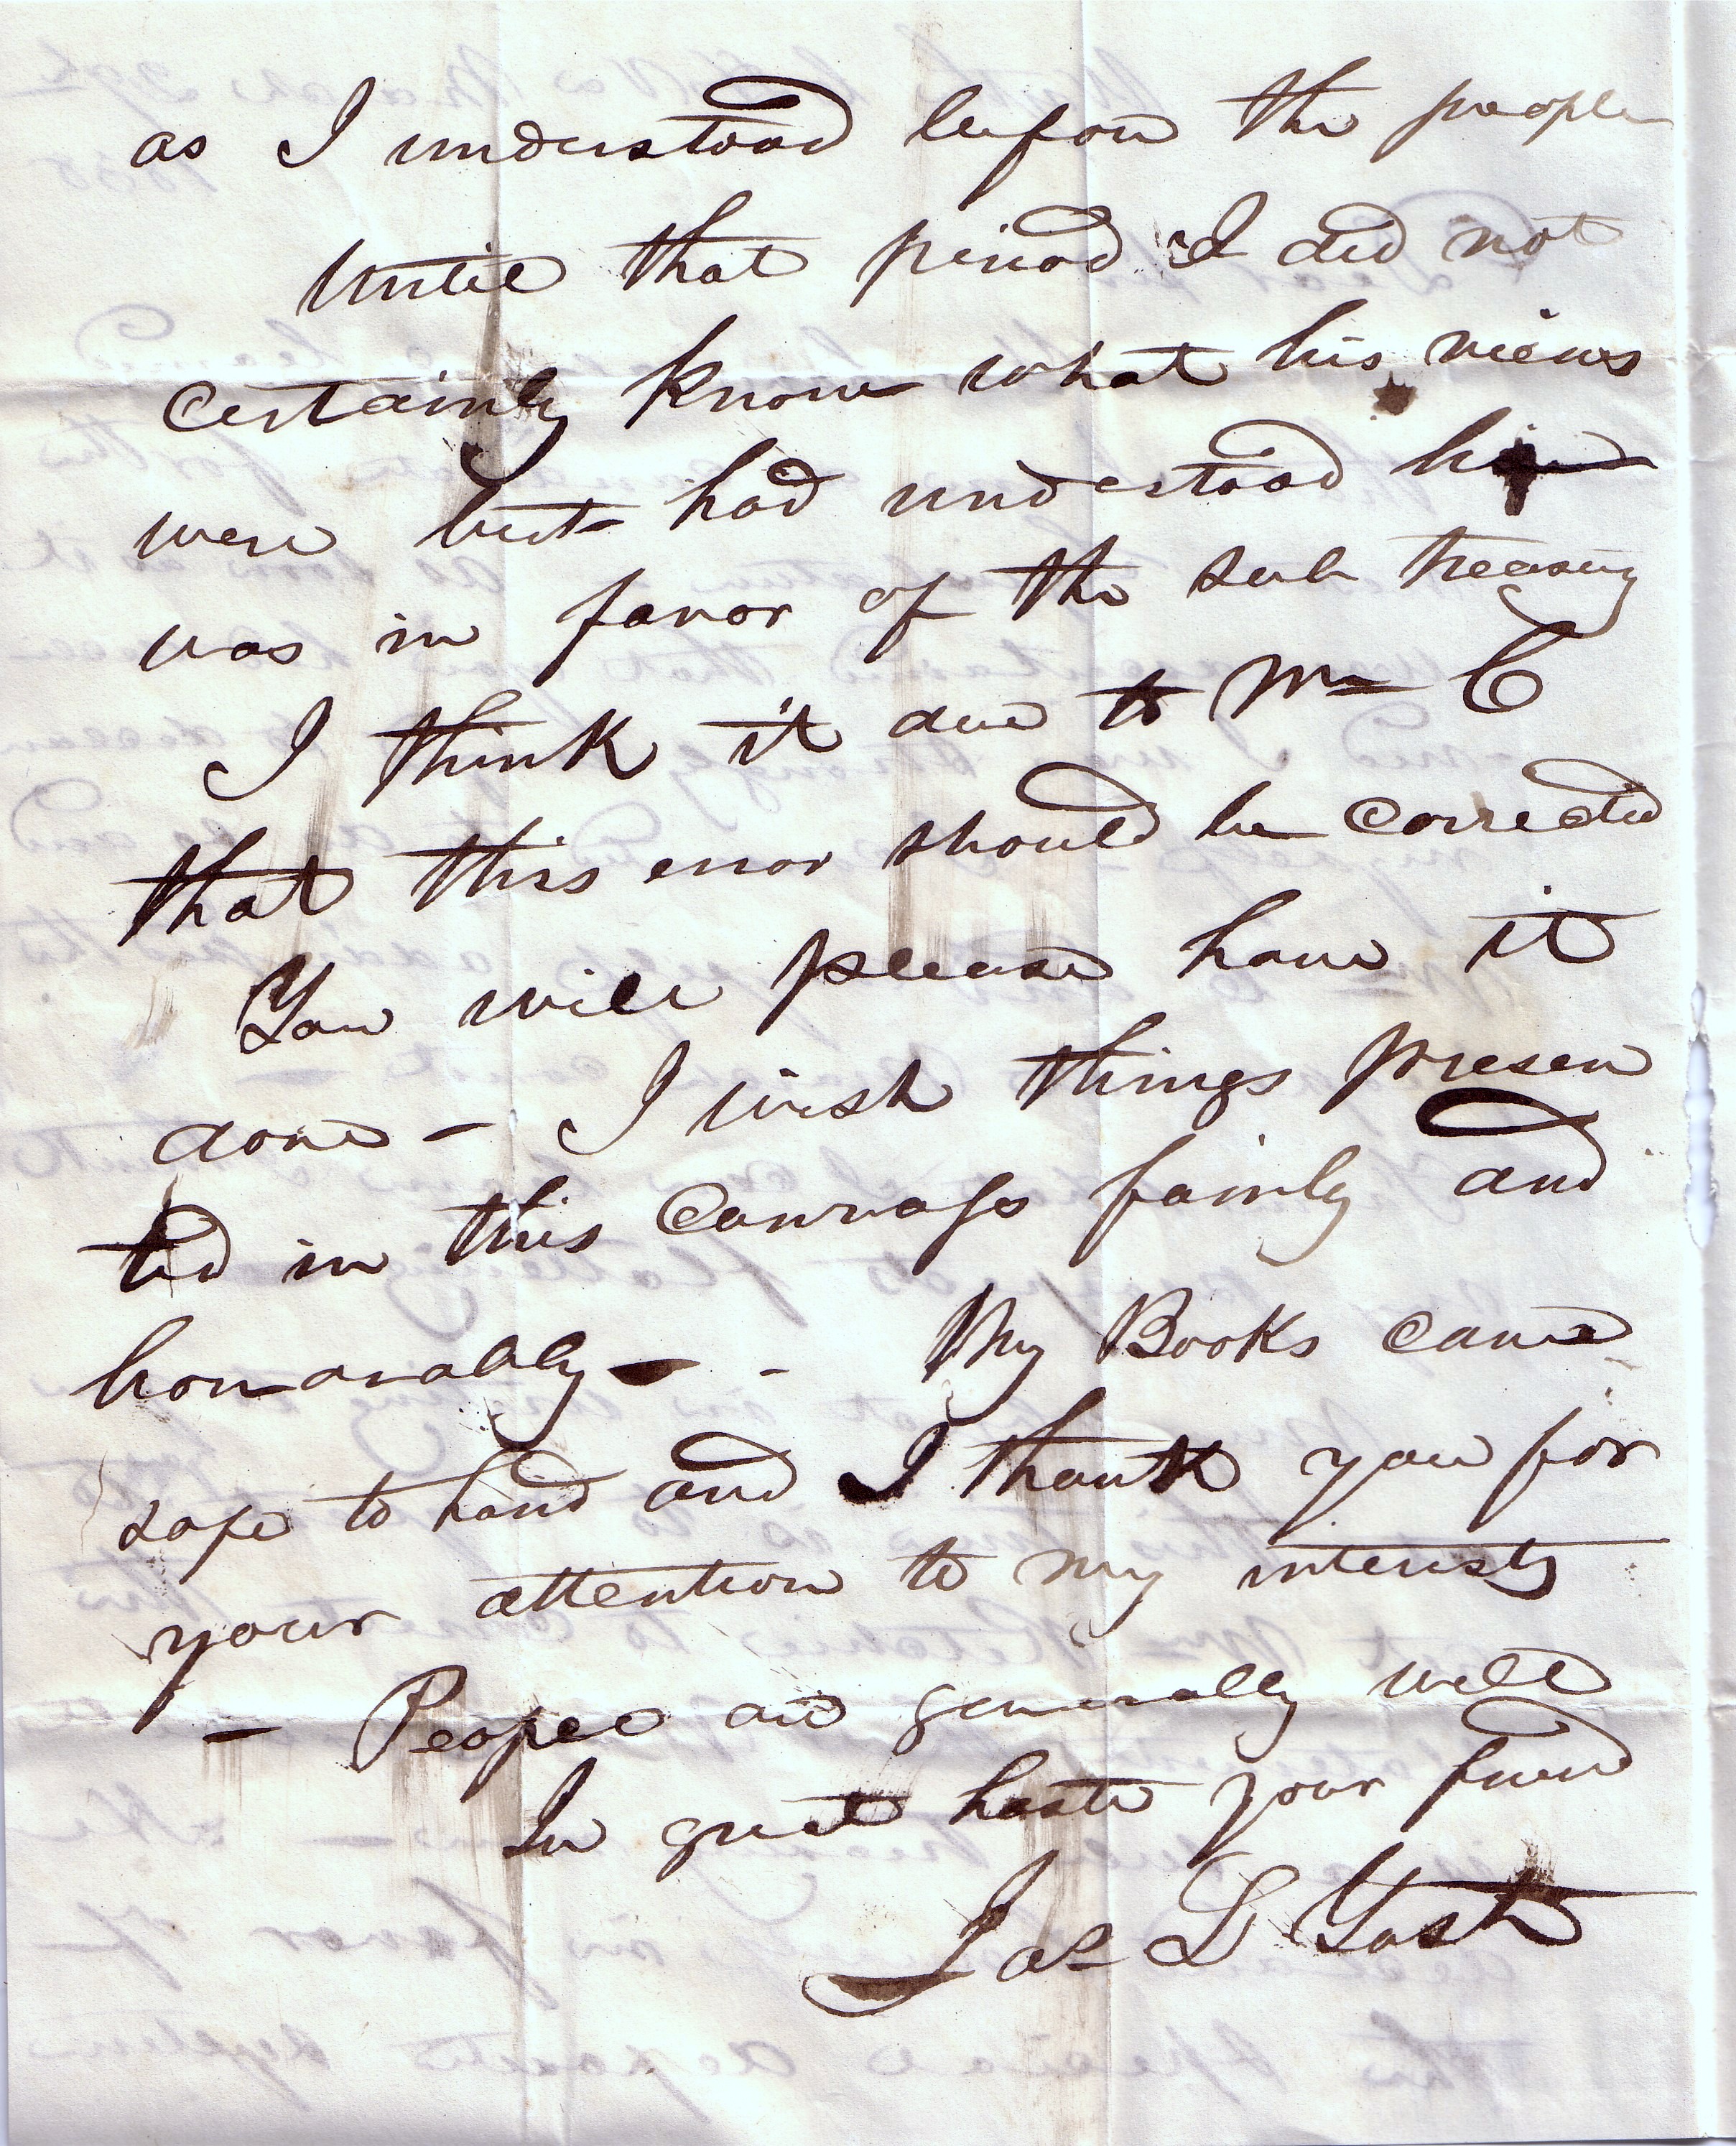 as I understood before the people
Until that period I did not
certainly know what his views
were but had understood he
was in favor of the sub treasury
I think it due to Mr C
that this error should be corrected
You will please have it
done – I wish things presen
ted in this Canvass fairly and
honorably – - My Books came
safe to hand and I thank you for
your attention to my interests
– People are generally well
In great haste your friend
Jas L Yost